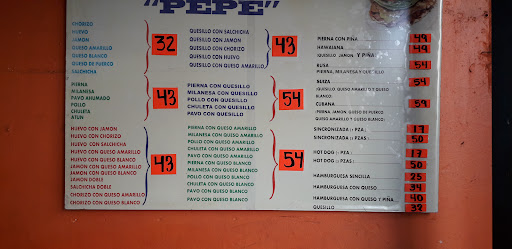 "PEPE"
CHORIZO
HUEVO
JAMON
QUESO AMARILLO
QUESO BLANCO
QUESO DE PUERCO
SALCHICHA
32
PIERNA
MILANESA
PAVO AHUMADO
POLLO
CHULETA
ATUN
43
HUEVO CON JAMON
HUEVO CON CHORIZO
HUEVO CON SALCHICHA
HUEVO CON QUESO AMARILLO
HUEVO CON QUESO BLANCO
JAMON CON QUESO AMARILLO
JAMON CON QUESO BLANCO
JAMON DOBLE
SALCHICHA DOBLE
CHORIZO CON QUESO AMARILLO
CHORIZO CON QUESO BLANCO
43
QUESILLO CON SALCHICHA
QUESILLO CON JAMON
QUESILLO CON CHORIZO
QUESILLO CON HUEVO
QUESILLO CON QUESO AMARILLO
43
PIERNA CON QUESILLO
MILANESA CON QUESILLO
POLLO CON QUESILLO
CHULETA CON QUESILLO
PAVO CON QUESILLO
54
PIERNA CON QUESO AMARILLO
MILANESA CON QUESO AMARILLO
POLLO CON QUESO AMARILLO
CHULETA CON QUESO AMARILLO
PAVO CON QUESO AMARILLO
PIERNA CON QUESO BLANCO
MILANESA CON QUESO BLANCO
POLLO CON QUESO BLANCO
CHULETA CON QUESO BLANCO
PAVO CON QUESO BLANCO
PAVO CON QUESO BLANCO
54
PIERNA CON PIÑA 49
HAWAIANA 49
(QUESILLO, JAMON Y PIÑA)
RUSA 54
PIERNA, MILANESA Y QUESILLO
SUIZA 54
(QUESILLO, QUESO AMARILLO Y QUESO
BLANCO)
CUBANA 59
(PIERNA, JAMON, QUESO DE PUERCO
QUESO AMARILLO Y QUESO BLANCO)
SINCRONIZADA :- PZA.: 17
SINCRONIZADA :- PZAS.: 50
HOT DOG :- PZA: 17
HOT DOG :- PZAS: 50
HAMBURGUESA SENCILLA 25
HAMBURGUESA CON QUESO 34
HAMBURGUESA CON QUESO Y PIÑA 40
QUESILLO 37